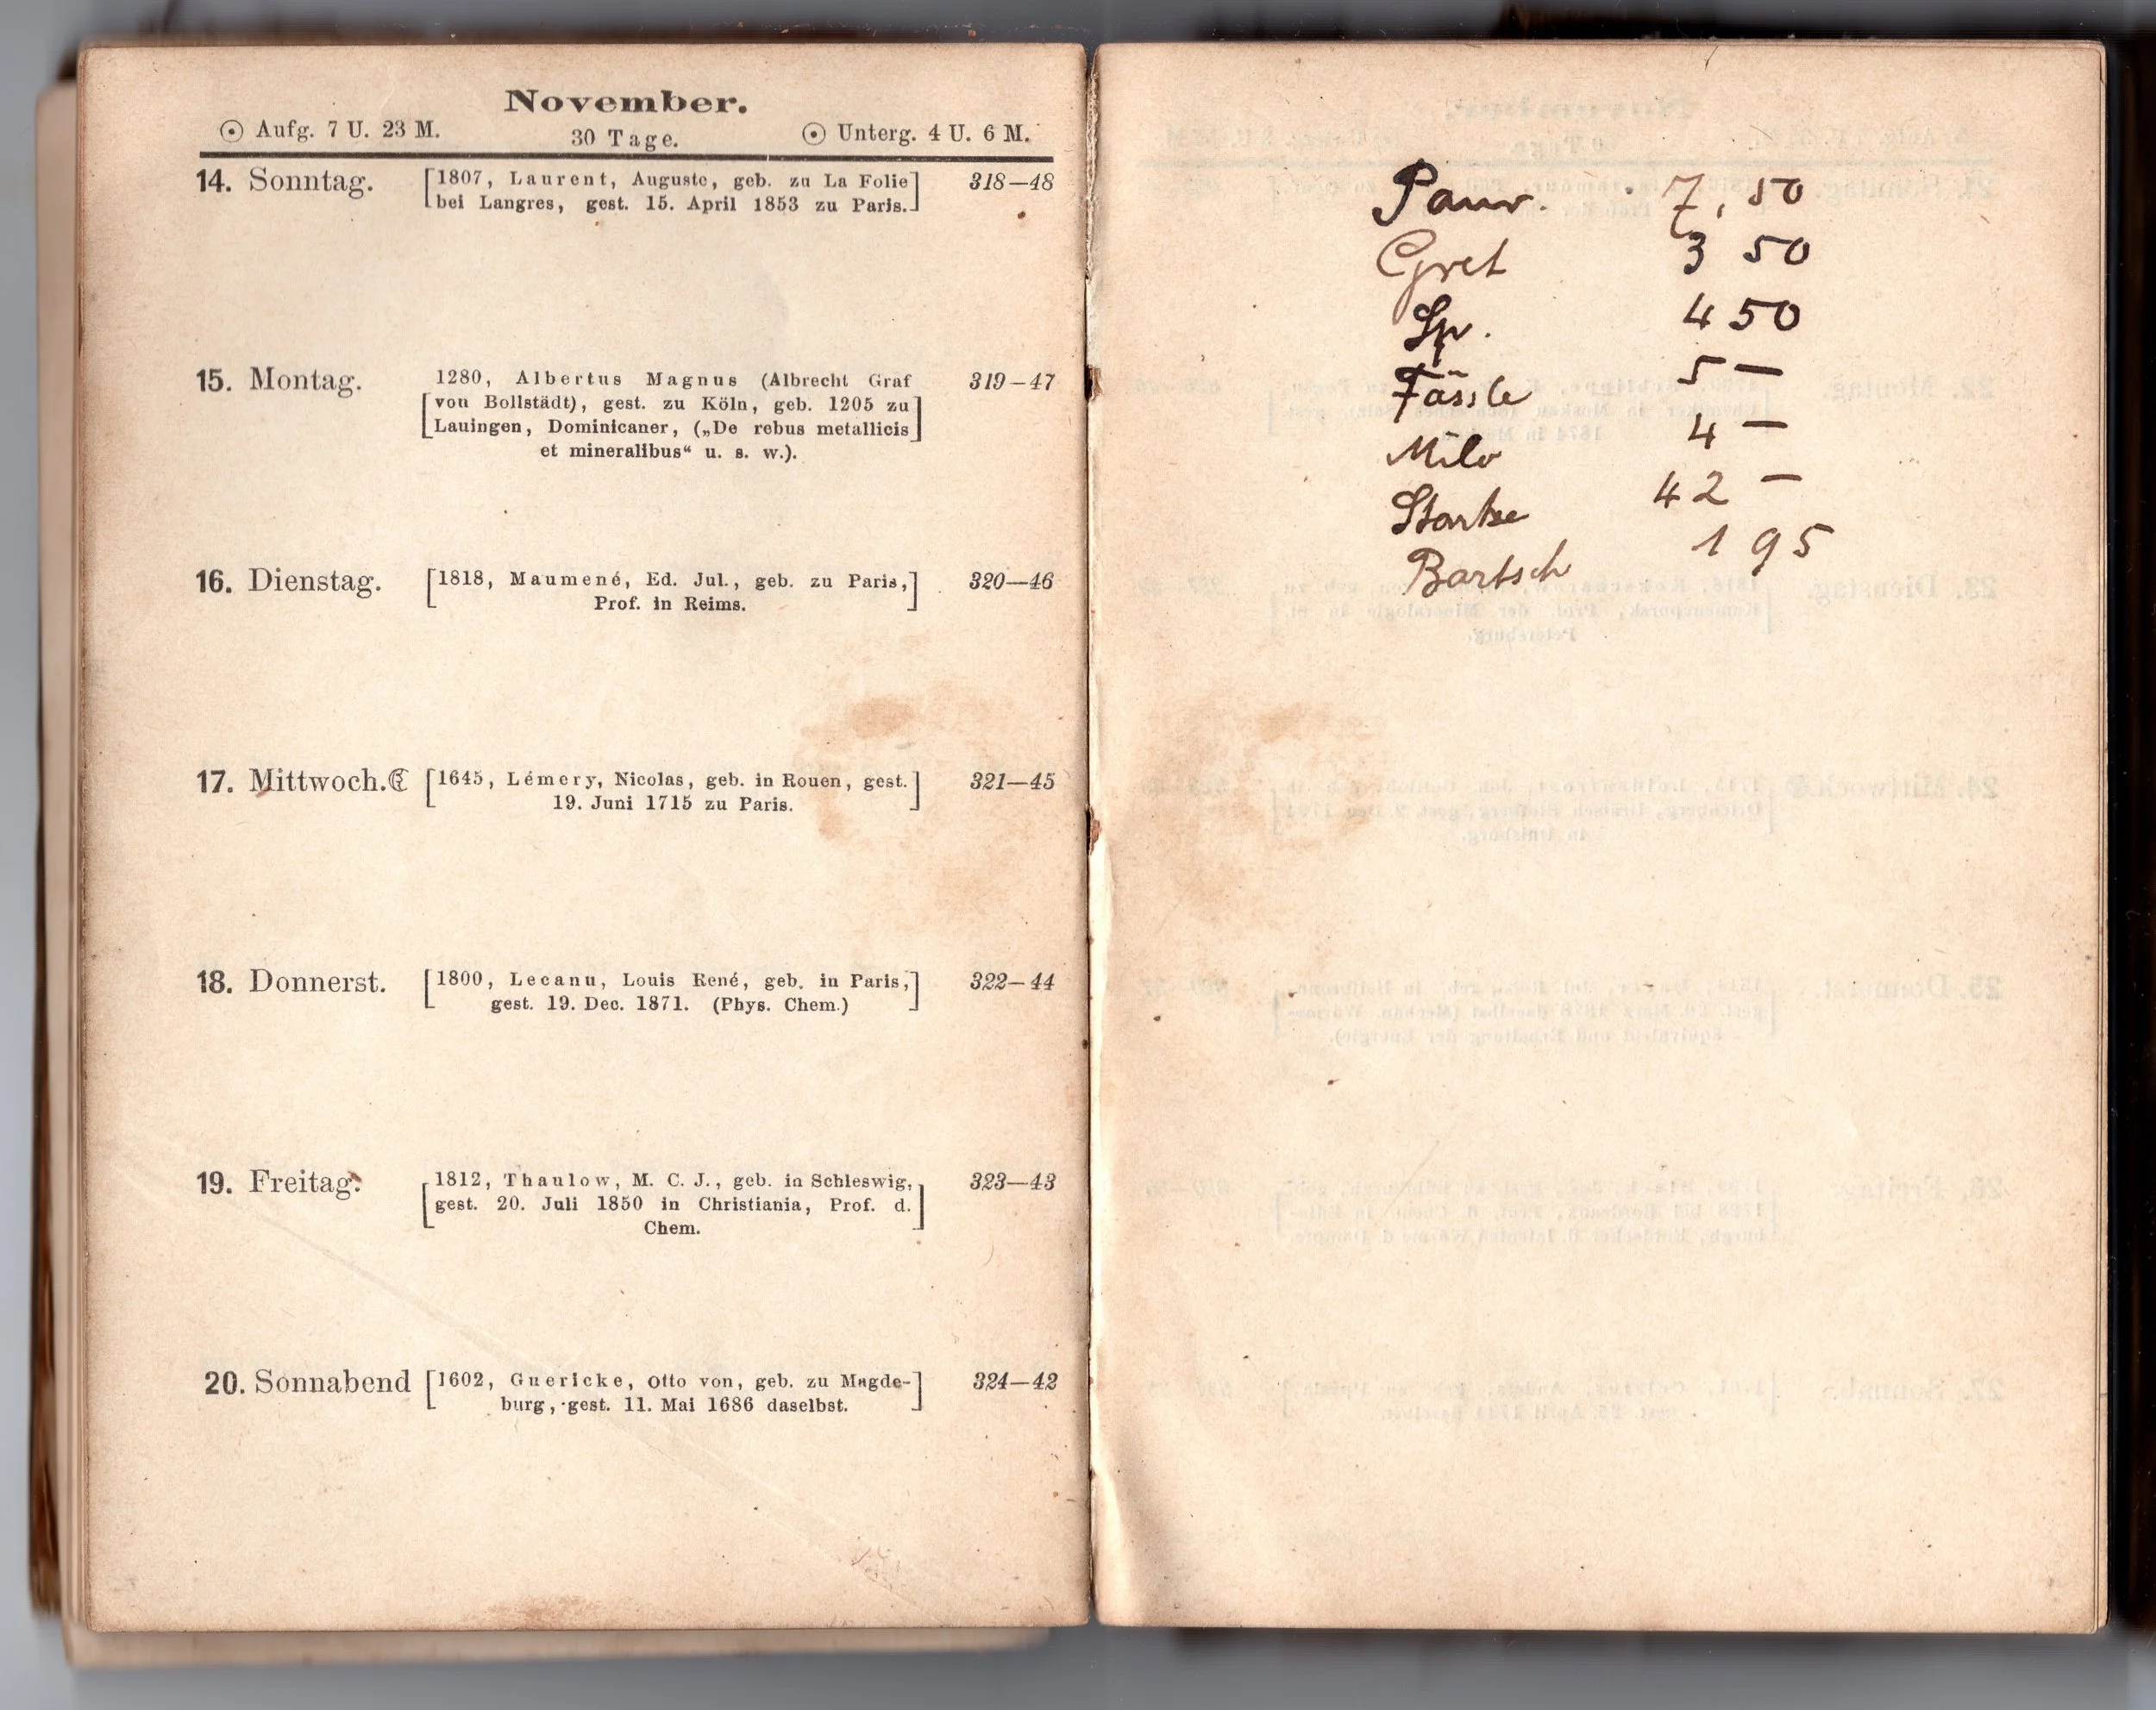 November.
☉ Aufg. 7 U. 23 M. 30 Tage. ☉ Unterg. 4 U. 6 M.
14. Sonntag. [1807, Laurent, Auguste, geb. zu La Folie] 318—48
bei Langres, gest. 15. April 1853 zu Paris.
15. Montag. 1280, Albertus Magnus (Albrecht Graf 319—47
[von Bollstädt), gest. zu Köln, geb. 1205 zu]
Lauingen, Dominicaner, („De rebus metallicis
et mineralibus“ u. s. w.).
16. Dienstag. [1818, Maumené, Ed. Jul., geb. zu Paris,] 320—46
Prof. in Reims.
17. Mittwoch.☾ [1645, Lémery, Nicolas, geb. in Rouen, gest.] 321—45
19. Juni 1715 zu Paris.
18. Donnerst. [1800, Lecanu, Louis René, geb. in Paris,] 322—44
gest. 19. Dec. 1871. (Phys. Chem.)
19. Freitag. [1812, Thaulow, M. C. J., geb. in Schleswig,] 323—43
gest. 20. Juli 1850 in Christiania, Prof. d.
Chem.
20. Sonnabend [1602, Guericke, Otto von, geb. zu Magde-] 324—42
burg, gest. 11. Mai 1686 daselbst.
7,50
Gret 3 50
Sp. 4 50
Fässle 5 —
Milo 4 —
Starke 42 —
Bartsch 1 95